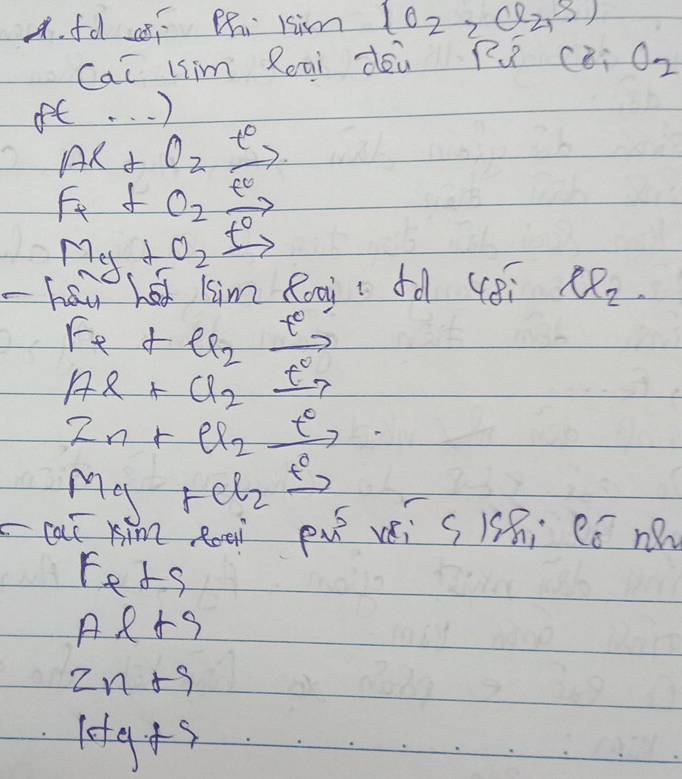 1. td với Phi kim (O2, Cl2, S)
Các kim loại đều Pư với O2
pt ...)
Al + O2 t°→
Fe + O2 t°→
Mg + O2 t°→
- hầu hết kim loại td với Cl2.
Fe + Cl2 t°→
Al + Cl2 t°→
Zn + Cl2 t°→
Mg + Cl2 t°→
- các kim loại pứ với S khi có
Fe + S
Al + S
Zn + S
Hg + S